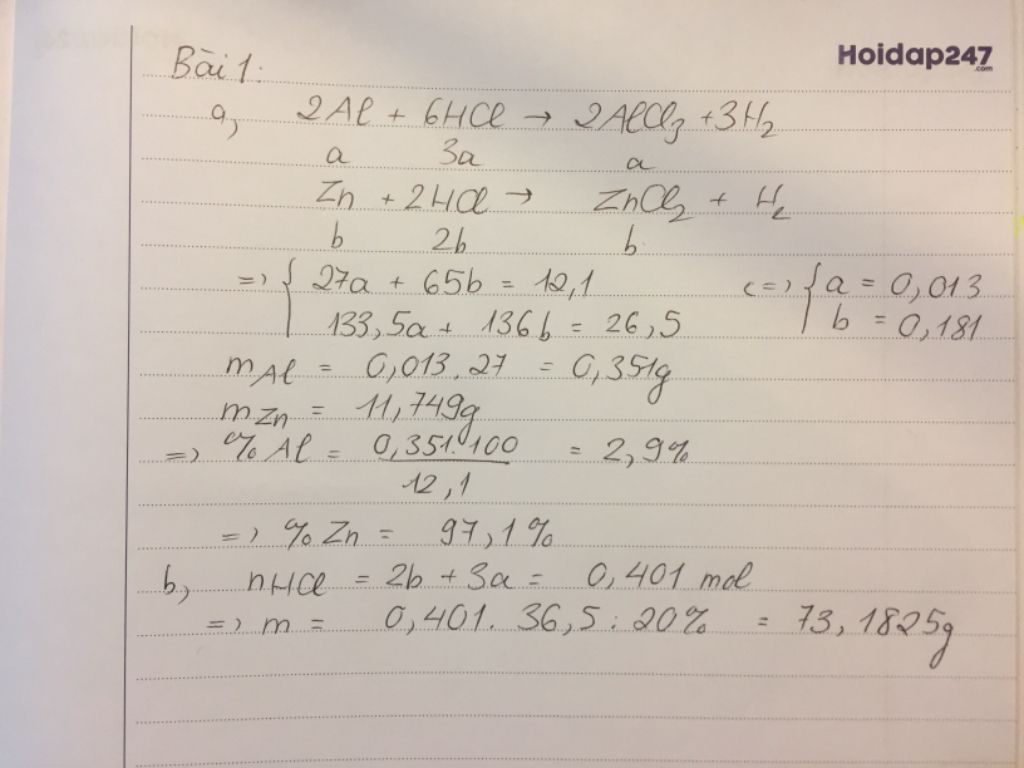 Hoidap247
.com
Bài 1:
a, 2Al + 6HCl → 2AlCl₃ + 3H₂
a 3a a
Zn + 2HCl → ZnCl₂ + H₂
b 2b b
=> { 27a + 65b = 12,1 <=> { a = 0,013
133,5a + 136b = 26,5 b = 0,181
m Al = 0,013.27 = 0,351g
m Zn = 11,749g
=> % Al = 0,351.100 = 2,9%
12,1
=> % Zn = 97,1%
b, nHCl = 2b + 3a = 0,401 mol
=> m = 0,401. 36,5 : 20% = 73,1825g